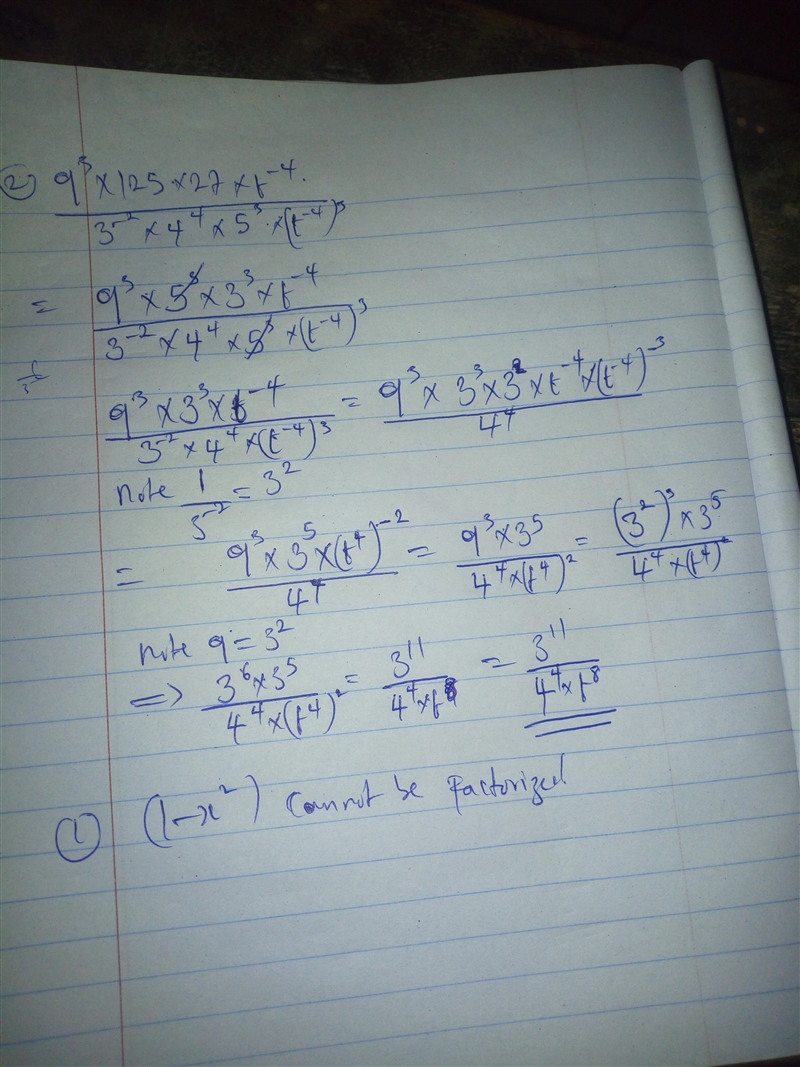 ② 9³ × 125 × 27 × t⁻⁴. / 3⁻² × 4⁴ × 5³ × (t⁻⁴)³
= 9³ × 5³ × 3³ × t⁻⁴ / 3⁻² × 4⁴ × 5³ × (t⁻⁴)³
9³ × 3³ × t⁻⁴ / 3⁻² × 4⁴ × (t⁻⁴)³ = 9³ × 3³ × 3² × t⁻⁴ × (t⁻⁴)⁻³ / 4⁴
note 1 / 3⁻² = 3²
= 9³ × 3⁵ × (t⁴)⁻² / 4⁴ = 9³ × 3⁵ / 4⁴ × (t⁴)² = (3²)³ × 3⁵ / 4⁴ × (t⁴)²
note 9 = 3²
=> 3⁶ × 3⁵ / 4⁴ × (t⁴)² = 3¹¹ / 4⁴ × t⁸ = 3¹¹ / 4⁴ × t⁸
① (1-x²) cannot be factorized